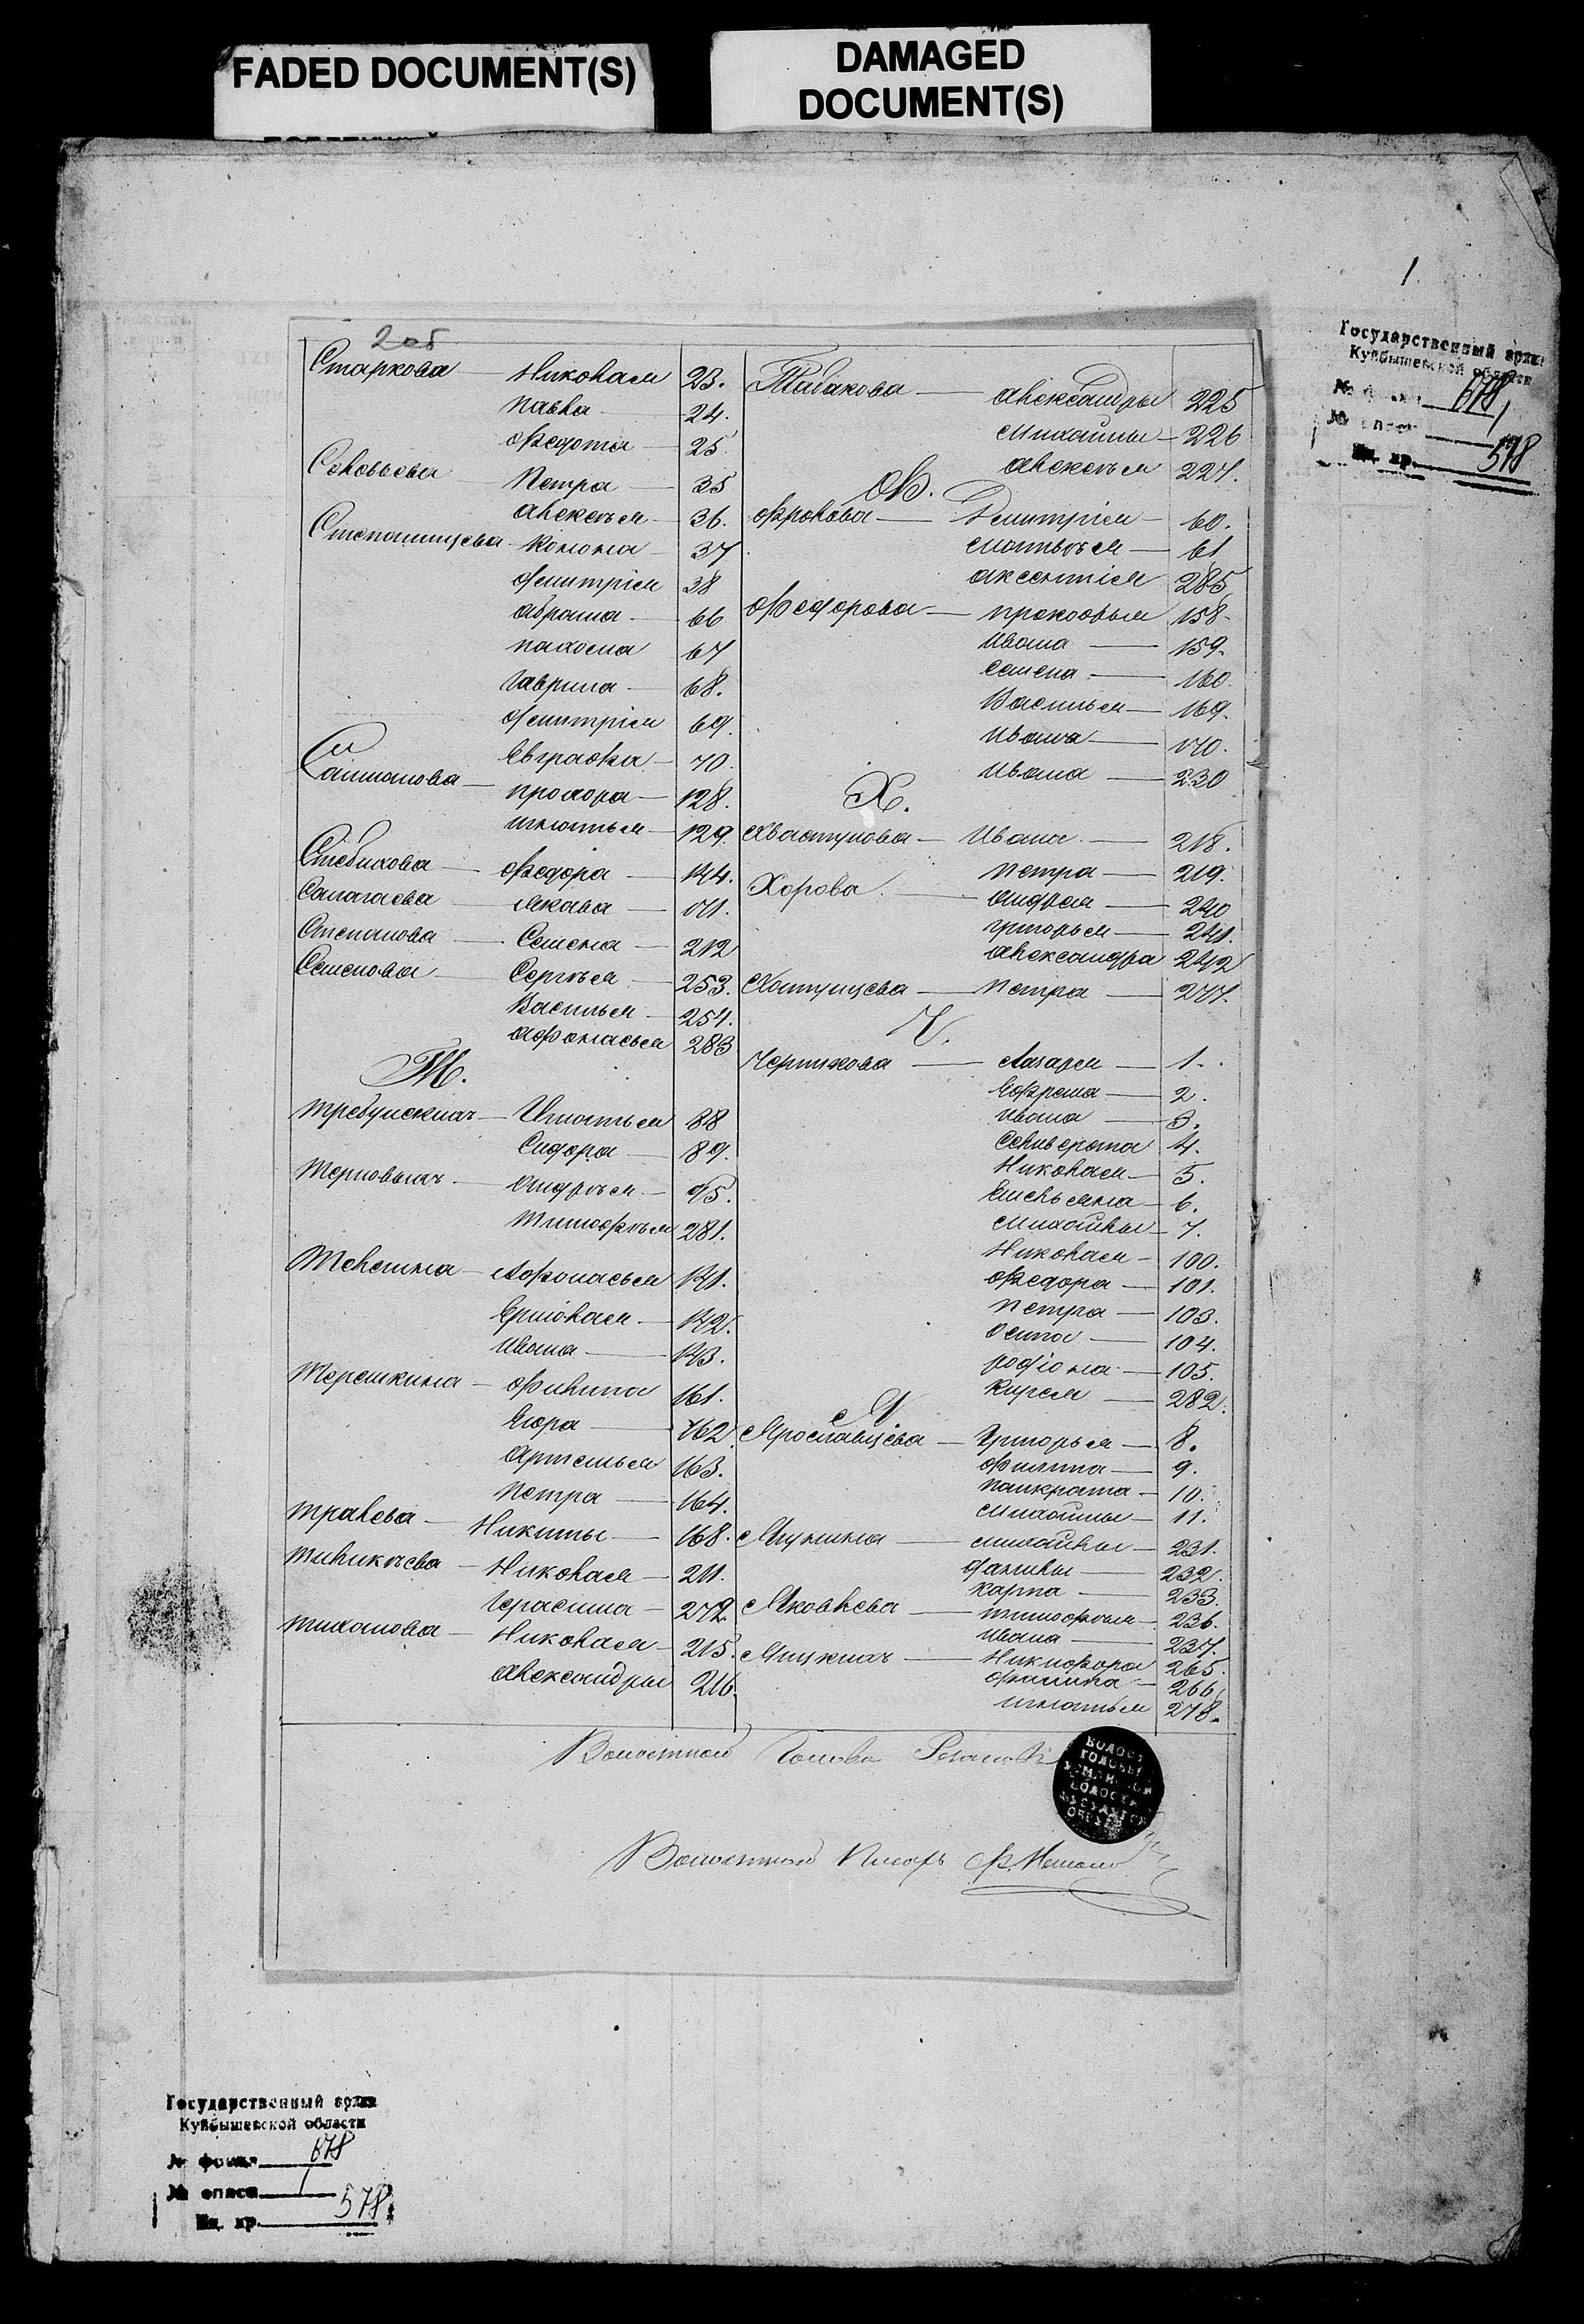 FADED DOCUMENT(S)
DAMAGED
DOCUMENT(S)
1.
Государственный архив
Куйбышевской области
№ фонда 678
№ описи 1
Ед. хр. 578
2об
Старкова — Николая 23.
Павла — 24.
Федота — 25.
Соловьева — Петра — 35
Алексъя — 36.
Степанищева — Конона — 37
Дмитрія 38
Абрама — 66
Пахома 67
Гаврила — 68.
Дмитрія 69.
Евграфа — 70.
Сапманова — Прохора — 128.
Игнатья — 129.
Федора — 144.
Салагаева — Якова — 171.
Степанова — Семена — 212
Семенова — Сергъя — 253.
Василья — 254.
Афанасья 283
Т.
Требунскихъ — Игнатья 88
Сидора — 89.
Терновыхъ — Андръя — 95.
Тимофъя 281.
Телегина — Афонасья 141.
Ермолая — 142.
Ивана — 143.
Терешкина — Филипа 161.
Егора — 162.
Артемья 163.
Петра — 164.
Тралева — Никиты — 168.
Николая — 211.
Герасима — 272.
Тиханова — Николая — 215.
Александры 216.
Табакова — Александры 225
Михаилы — 226
Алексъя 227.
Ф.
Фролова — Дмитрія — 60.
Матвъя — 61
Аксентія 285
Федорова — Прокофья 158.
Ивана — 159.
Семена — 160.
Василья — 169.
Ивана — 170.
Ивана — 230
Х.
Хвастунова — Ивана — 218.
Петра — 219.
Хорова — Андрея — 240
Григорья — 241.
Александра 242
Хатунцева — Петра — 277.
Ч.
Чернихова — Лазаря — 1.
Ефрема — 2.
Ивана — 3.
Селиверста 4.
Николая — 5.
Емельяна — 6.
Михайлы — 7.
Николая — 100.
Федора — 101.
Петра — 103.
Осипа — 104.
Родіона — 105.
Кирея — 282.
Я
Ярославцева — Григорья — 8.
Филипа — 9.
Панкрата — 10.
Михаилы — 11.
Ягунина — Михайлы — 231.
Данилы — 232.
Карпа — 233.
Яковлева — Тимофъя — 236.
Ивана — 237.
Яицкихъ — Никифора 265.
Филипа — 266.
Игнатья 278.
Волостной Голова
Волостной Писарь
Государственный архив
Куйбышевской области
№ фонда 678
№ описи 1
Ед. хр. 578